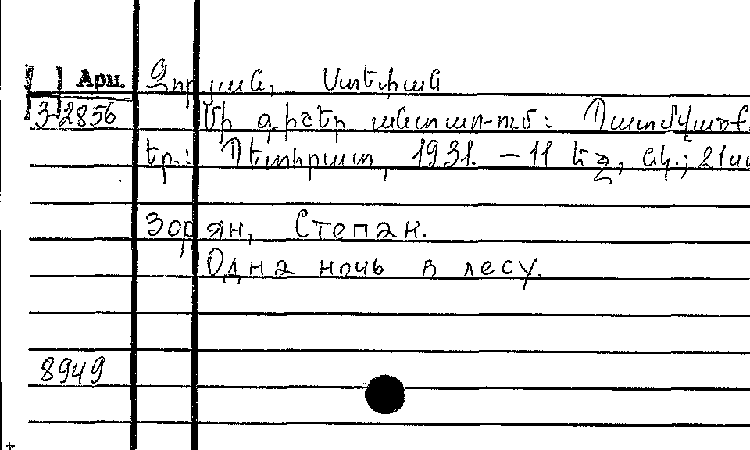 Арм. Զորյան, Ստեփան
3-2856 Մի գիշեր անտառ-ում: Պատմվածք
եր.: Պետհրատ, 1931. – 11 եջ, նկ.; 21սմ
Зорян, Степан.
Одна ночь в лесу.
8949